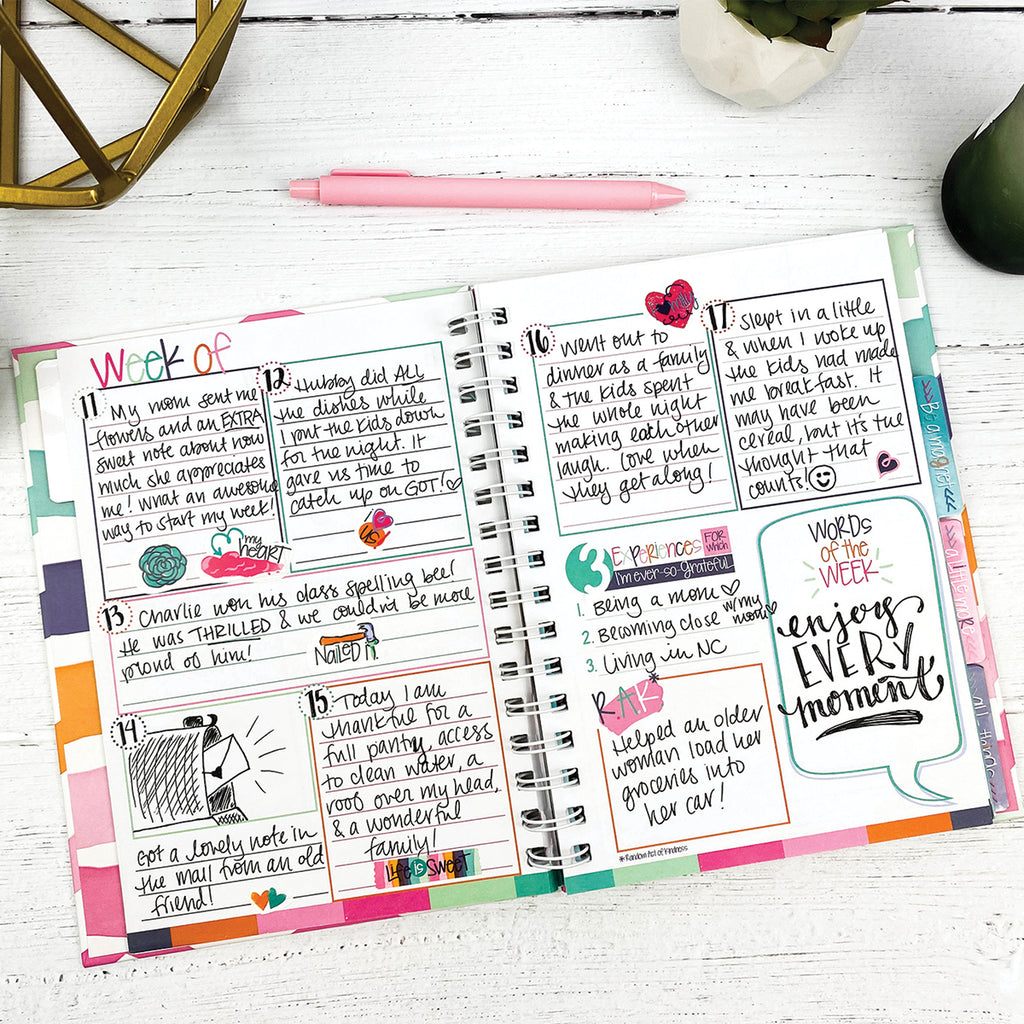 Week of
11
My mom sent me
flowers and an EXTRA
sweet note about how
much she appreciates
me! What an awesome
way to start my week!
my
heART
12
Hubby did ALL
the dishes while
I put the kids down
for the night. It
gave us time to
catch up on GOT!
US
13
Charlie won his class spelling bee!
He was THRILLED & we couldn't be more
proud of him!
NaiLED iT.
14
Got a lovely note in
the mail from an old
friend!
15
Today I am
thankful for a
full pantry, access
to clean water, a
roof over my head,
& a wonderful
family!
Life is Sweet
16
Went out to
dinner as a family
& the kids spent
the whole night
making each other
laugh. Love when
they get along!
family
17
Slept in a little
& when I woke up
the kids had made
me breakfast. It
may have been
cereal, but it's the
thought that
counts!
3 Experiences FOR which
I'm ever-so-grateful
1. Being a mom
2. Becoming close w/my mom
3. Living in NC
R.A.K*
Helped an older
woman load her
groceries into
her car!
*Random Act of Kindness
WORDS
OF the
WEEK
enjoy
EVERY
moment
Be a magnet
a little more